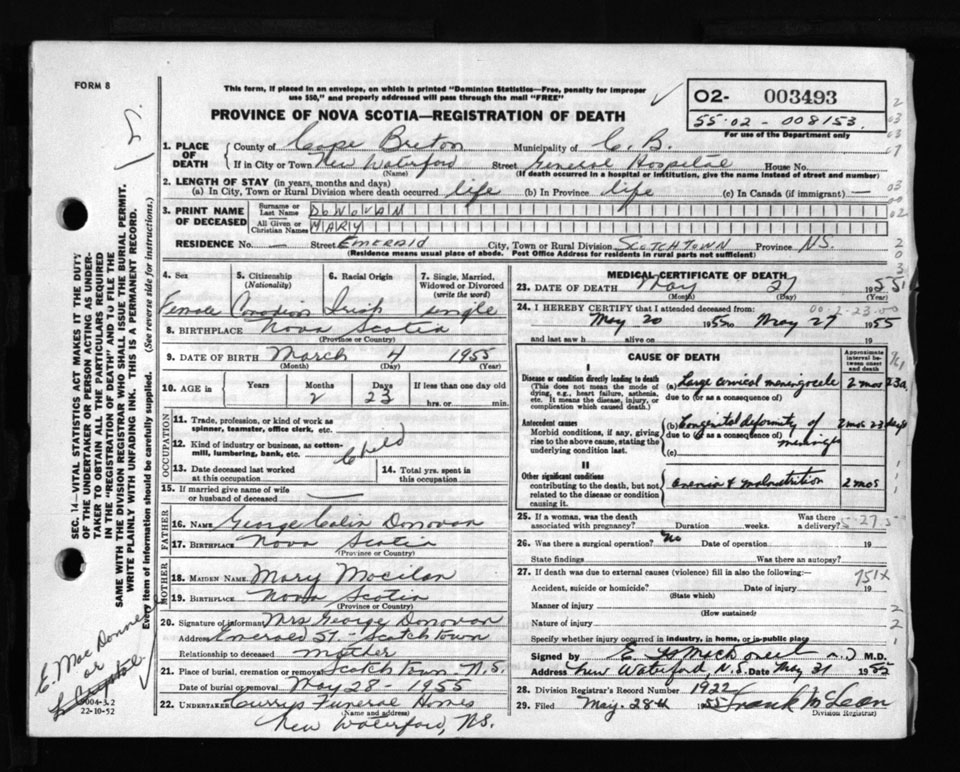 FORM 8
This form, if placed in an envelope, on which is printed "Dominion Statistics—Free, penalty for improper
use $50," and properly addressed will pass through the mail "FREE"
PROVINCE OF NOVA SCOTIA—REGISTRATION OF DEATH
02- 003493
55-02-008153
For use of the Department only
1. PLACE OF DEATH
County of Cape Breton Municipality of C. B.
If in City or Town New Waterford Street General Hospital House No.
(Name) (If death occurred in a hospital or institution, give the name instead of street and number)
2. LENGTH OF STAY (in years, months and days)
(a) In City, Town or Rural Division where death occurred life (b) In Province life (c) In Canada (if immigrant) —
3. PRINT NAME OF DECEASED
Surname or Last Name DONOVAN
All Given or Christian Names MARY
RESIDENCE No. — Street EMERALD City, Town or Rural Division SCOTCHTOWN Province N.S.
(Residence means usual place of abode. Post Office Address for residents in rural parts not sufficient)
4. Sex Female
5. Citizenship (Nationality) Canadian
6. Racial Origin Irish
7. Single, Married, Widowed or Divorced (write the word) single
8. BIRTHPLACE Nova Scotia
(Province or Country)
9. DATE OF BIRTH March 4 1955
(Month) (Day) (Year)
10. AGE in Years Months 2 Days 23 If less than one day old
hrs. or min.
OCCUPATION
11. Trade, profession, or kind of work as
spinner, teamster, office clerk, etc.
12. Kind of industry or business, as cotton-
mill, lumbering, bank, etc. Child
13. Date deceased last worked
at this occupation
14. Total yrs. spent in
this occupation
15. If married give name of wife
or husband of deceased —
FATHER
16. NAME George Donovan
17. BIRTHPLACE Nova Scotia
(Province or Country)
MOTHER
18. MAIDEN NAME Mary
19. BIRTHPLACE Nova Scotia
(Province or Country)
20. Signature of informant Mrs George Donovan
Address Emerald St. - Scotch Town
Relationship to deceased mother
21. Place of burial, cremation or removal Scotch Town N.S.
Date of burial or removal May 28 - 1955
22. UNDERTAKER Currys Funeral Homes
(Name and address)
New Waterford, N.S.
MEDICAL CERTIFICATE OF DEATH
23. DATE OF DEATH May 27 1955
(Month) (Day) (Year)
24. I HEREBY CERTIFY that I attended deceased from:
May 20 1955 to May 27 1955
and last saw h alive on 19
CAUSE OF DEATH
Approximate interval between onset and death
I
Disease or condition directly leading to death
(This does not mean the mode of
dying, e.g., heart failure, asthenia,
etc. It means the disease, injury, or
complication which caused death.)
(a) Large cervical meningocele 2 mos 23 d
due to (or as a consequence of)
Antecedent causes
Morbid conditions, if any, giving
rise to the above cause, stating the
underlying condition last.
(b) Congenital deformity of meninges 2 mos 23 days
due to (or as a consequence of)
(c)
II
Other significant conditions
contributing to the death, but not
related to the disease or condition
causing it.
& malnutrition 2 mos
25. If a woman, was the death
associated with pregnancy? Duration weeks. Was there
a delivery?
26. Was there a surgical operation? No Date of operation 19
State findings Was there an autopsy?
27. If death was due to external causes (violence) fill in also the following:—
751X
Accident, suicide or homicide? Date of injury 19
(State which)
Manner of injury
(How sustained)
Nature of injury
Specify whether injury occurred in industry, in home, or in public place
Signed by M.D.
Address New Waterford, N.S. Date May 31 1955
28. Division Registrar's Record Number 1922
29. Filed May. 28th 1955 Frank McLean
Division Registrar)
SEC. 14—VITAL STATISTICS ACT MAKES IT THE DUTY
OF THE UNDERTAKER OR PERSON ACTING AS UNDER-
TAKER TO OBTAIN ALL THE PARTICULARS REQUIRED
IN THE "REGISTRATION OF DEATH" AND TO FILE THE
SAME WITH THE DIVISION REGISTRAR WHO SHALL ISSUE THE BURIAL PERMIT.
WRITE PLAINLY WITH UNFADING INK. THIS IS A PERMANENT RECORD.
Every item of information should be carefully supplied. (See reverse side for instructions.)
E. MacDonne
or
22-10-52